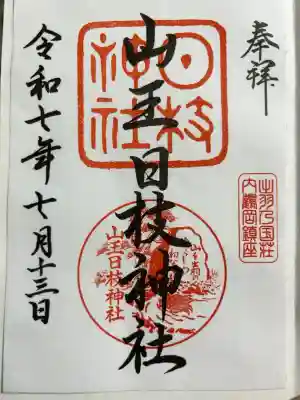 奉拝
出羽乃国荘
内鶴岡鎮座
山王日枝神社
日枝
神社
山王日枝神社
令和七年七月十三日